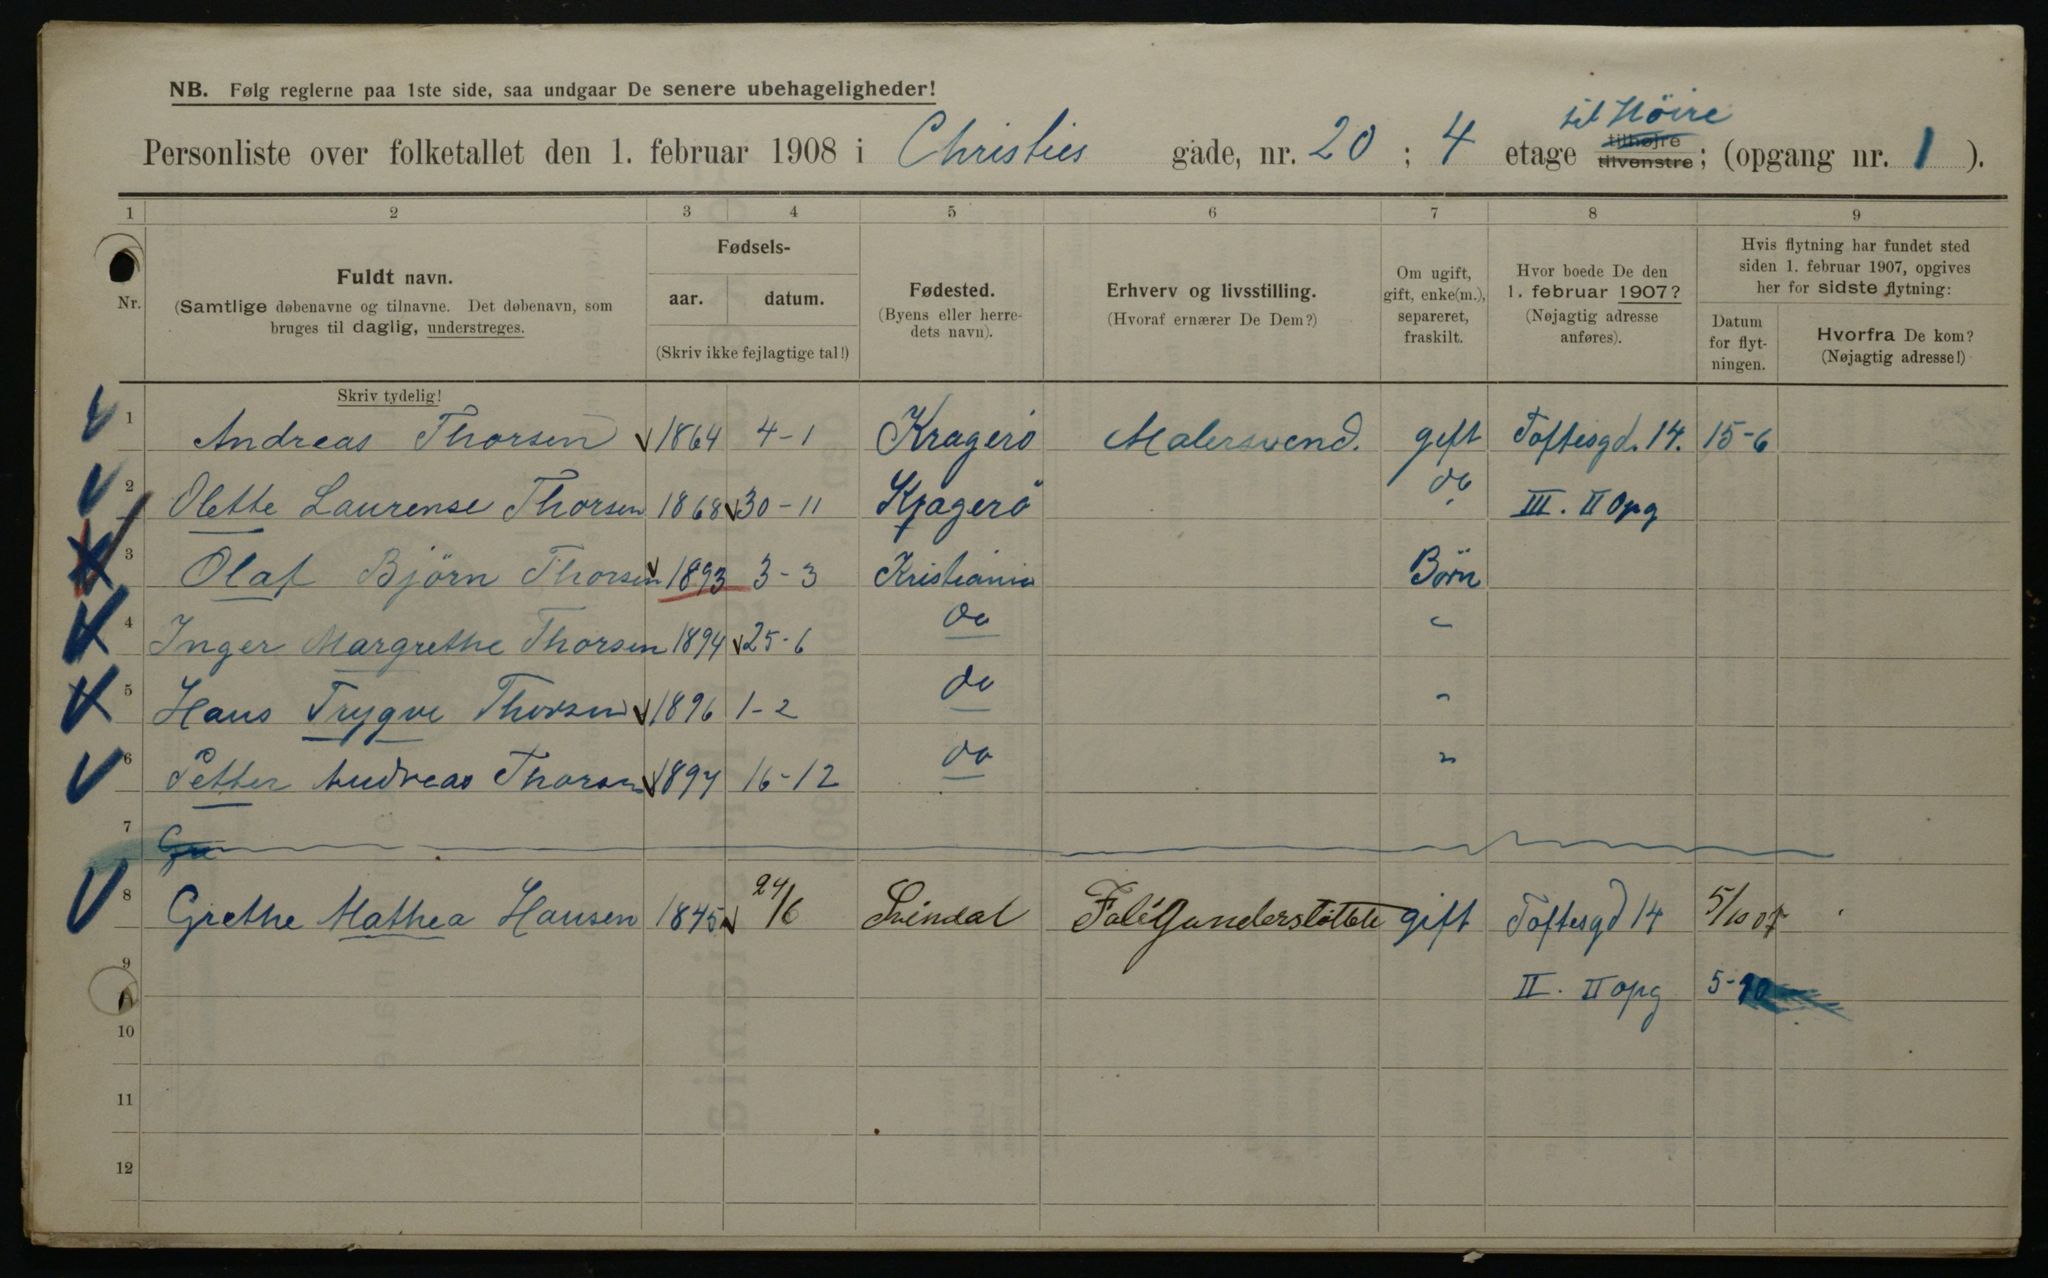 NB. Følg reglerne paa 1ste side, saa undgaar De senere ubehageligheder!
til Höire
Personliste over folketallet den 1. februar 1908 i Christies gade, nr. 20 ; 4 etage tilhøjre tilvenstre ; (opgang nr. 1 ).
1 2 3 4 5 6 7 8 9
Nr.
Fuldt navn.
(Samtlige døbenavne og tilnavne. Det døbenavn, som
bruges til daglig, understreges.
Skriv tydelig!
Fødsels-
aar. datum.
(Skriv ikke fejlagtige tal!)
Fødested.
(Byens eller herre-
dets navn).
Erhverv og livsstilling.
(Hvoraf ernærer De Dem?)
Om ugift,
gift, enke(m.),
separeret,
fraskilt.
Hvor boede De den
1. februar 1907?
(Nøjagtig adresse
anføres).
Hvis flytning har fundet sted
siden 1. februar 1907, opgives
her for sidste flytning:
Datum
for flyt-
ningen.
Hvorfra De kom?
(Nøjagtig adresse!)
1 Andreas Thorsen 1864 4-1 Kragerö Malersvend. gift Toftesgd. 14. 15-6
2 Olette Laurense Thorsen 1868 30-11 Kragerö do III. II Opg
3 Olaf Björn Thorsen 1893 3-3 Kristiania Børn
4 Inger Margrethe Thorsen 1894 25-6 do "
5 Hans Trygve Thorsen 1896 1-2 do "
6 Petter Andreas Thorsen 1897 16-12 do "
7 Gre
8 Grethe Mathea Hansen 1845 24/6 Svindal gift Toftesgd 14 5/10 07
9 II. II opg 5-10
10
11
12